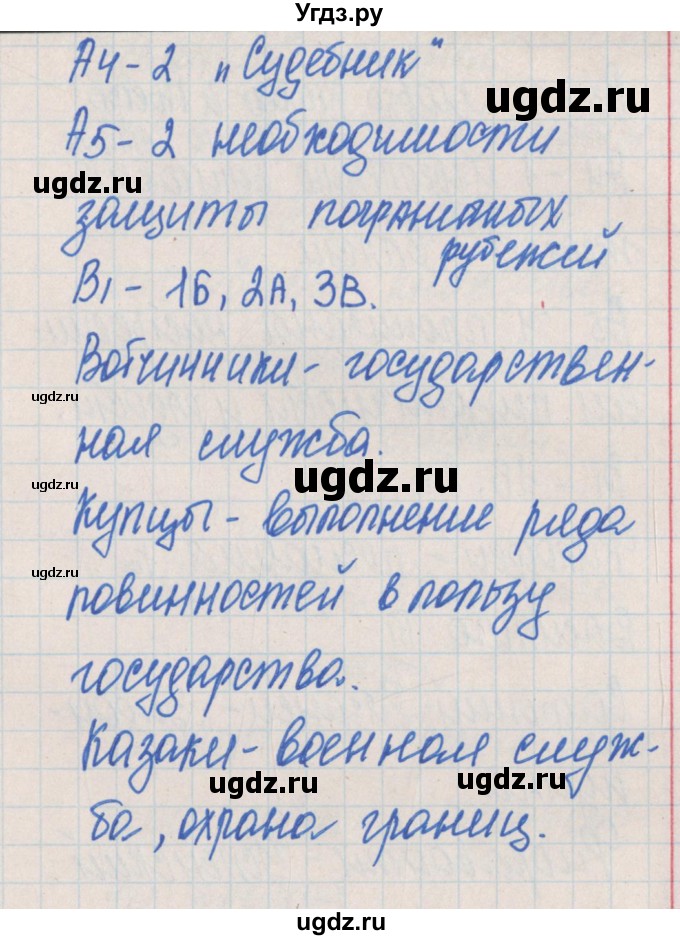 Угдз.ру
А4-2 „Судебник"
ugdz.ru
А5-2 необходимости
ugdz.ru
защиты пограничных
рубежей
ugdz.ru
В1 - 1Б, 2А, 3В.
Вотчинники - государствен-
ugdz.ru
ная служба.
ugdz.ru
ugdz.ru
Купцы - выполнение ряда
ugdz.ru
повинностей в пользу
государства.
Казаки - военная служ-
ugdz.ru
ugdz.ru
ба, охрана границ.
ugdz.ru